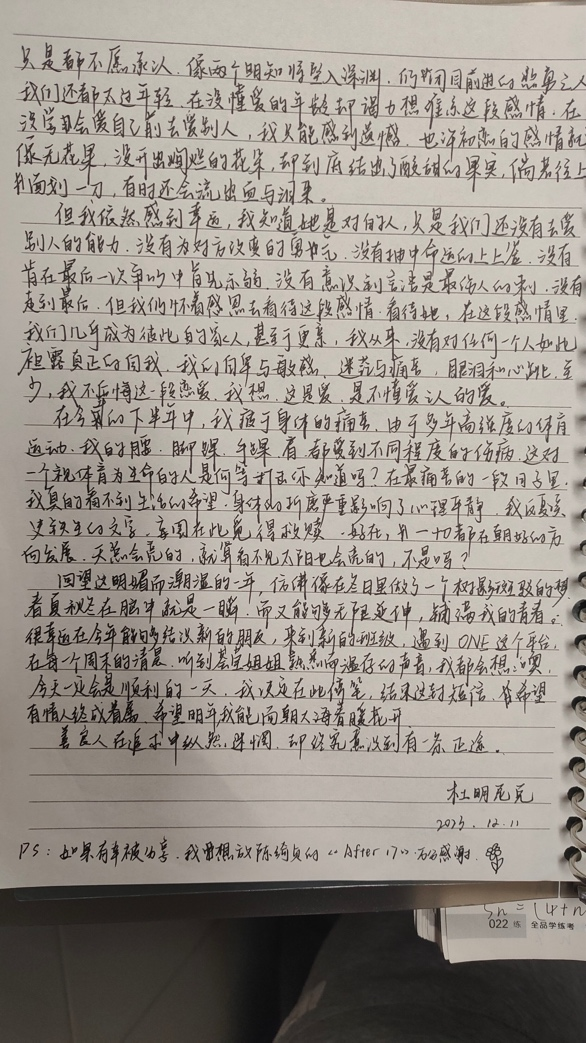 只是都不愿承认。像两个明知将坠入深渊，仍紧闭目前进的愚勇之人
我们还都太过年轻，在没懂爱的年龄却竭力想维系这段感情，在
没学会爱自己前去爱别人，我只能感到遗憾，也许初恋的感情就
像无花果，没开出绚烂的花朵，却到底结出了酸甜的果实，倘若往上
面划一刀，有时还会流出血与泪来。
但我依然感到幸运，我知道她是对的人，只是我们还没有去爱
别人的能力，没有为对方改变的勇气，没有抽中命运的上上签，没有
肯在最后一次争吵中首先示弱，没有意识到言语是最伤人的刺，没有
走到最后，但我仍怀着感恩去看待这段感情，看待她，在这段感情里
我们几乎成为彼此的家人，甚至于更亲，我从来没有对任何一个人如此
袒露真正的自我，我的自卑与敏感，迷茫与痛苦，眼泪和心跳，至
少，我不后悔这一段恋爱，我想，这是爱，是不懂爱之人的爱。
在今年的下半年中，我疲于身体的痛苦，由于多年高强度的体育
运动，我的腰、脚踝、手踝、肩都受到不同程度的伤病，这对
一个视体育为生命的人是何等打击你知道吗？在最痛苦的一段日子里
我真的看不到生活的希望，身体的折磨严重影响了心理平静，我反复读
史铁生的文字，妄图在此觅得救赎，好在，一切都在朝好的方
向发展，天总会亮的，就算看不见太阳也会亮的，不是吗？
回望这明媚而潮湿的一年，仿佛像在冬日里做了一个树影斑驳的梦
春夏秋冬在脑中就是一瞬，而又能够无限延伸，铺满我的青春。
很幸运在今年能够结识新的朋友，来到新的班级，遇到ONE这个平台，
在每一个周末的清晨，听到姐姐熟悉而温存的声音，我都会想：噢，
今天一定会是顺利的一天，我决定在此停笔，结束这封短信，我希望
有情人终成眷属，希望明年我能面朝大海春暖花开
善良人在追求中纵然迷惘，却终究意识到有一条正途。
杜明尼克
2023.12.11
PS：如果有幸被分享，我要想放陈绮贞的“After 17”万分感谢
Sn=(4+n
022 练 全品学练考